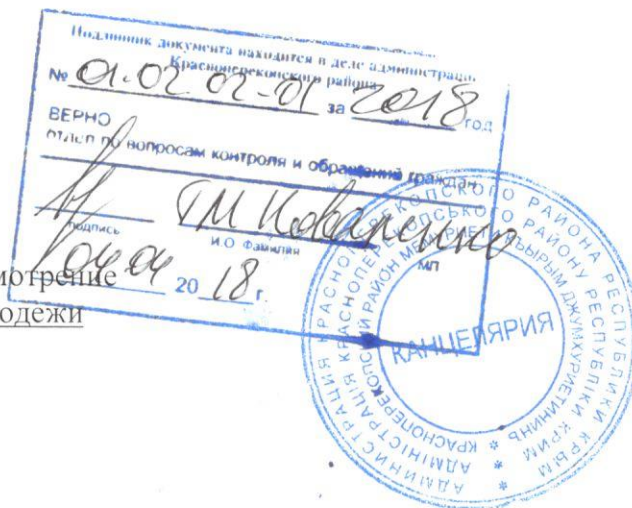 Подлинник документа находится в деле администрации
Красноперекопского района
№ 01.02 02-01 за 2018 год
ВЕРНО
отдел по вопросам контроля и обращений граждан
ТМ Коваленко
подпись
И.О Фамилия
МП
04.04 20 18 г.
мотрение
одежи
АДМИНИСТРАЦИЯ КРАСНОПЕРЕКОПСКОГО РАЙОНА РЕСПУБЛИКИ КРЫМ
АДМІНІСТРАЦІЯ КРАСНОПЕРЕКОПСЬКОГО РАЙОНУ РЕСПУБЛІКИ КРИМ
КЪЫРЫМ ДЖУМХУРИЕТИНИНЪ КРАСНОПЕРЕКОПСКИЙ РАЙОН МЕМУРИЕТИ
КАНЦЕЛЯРИЯ